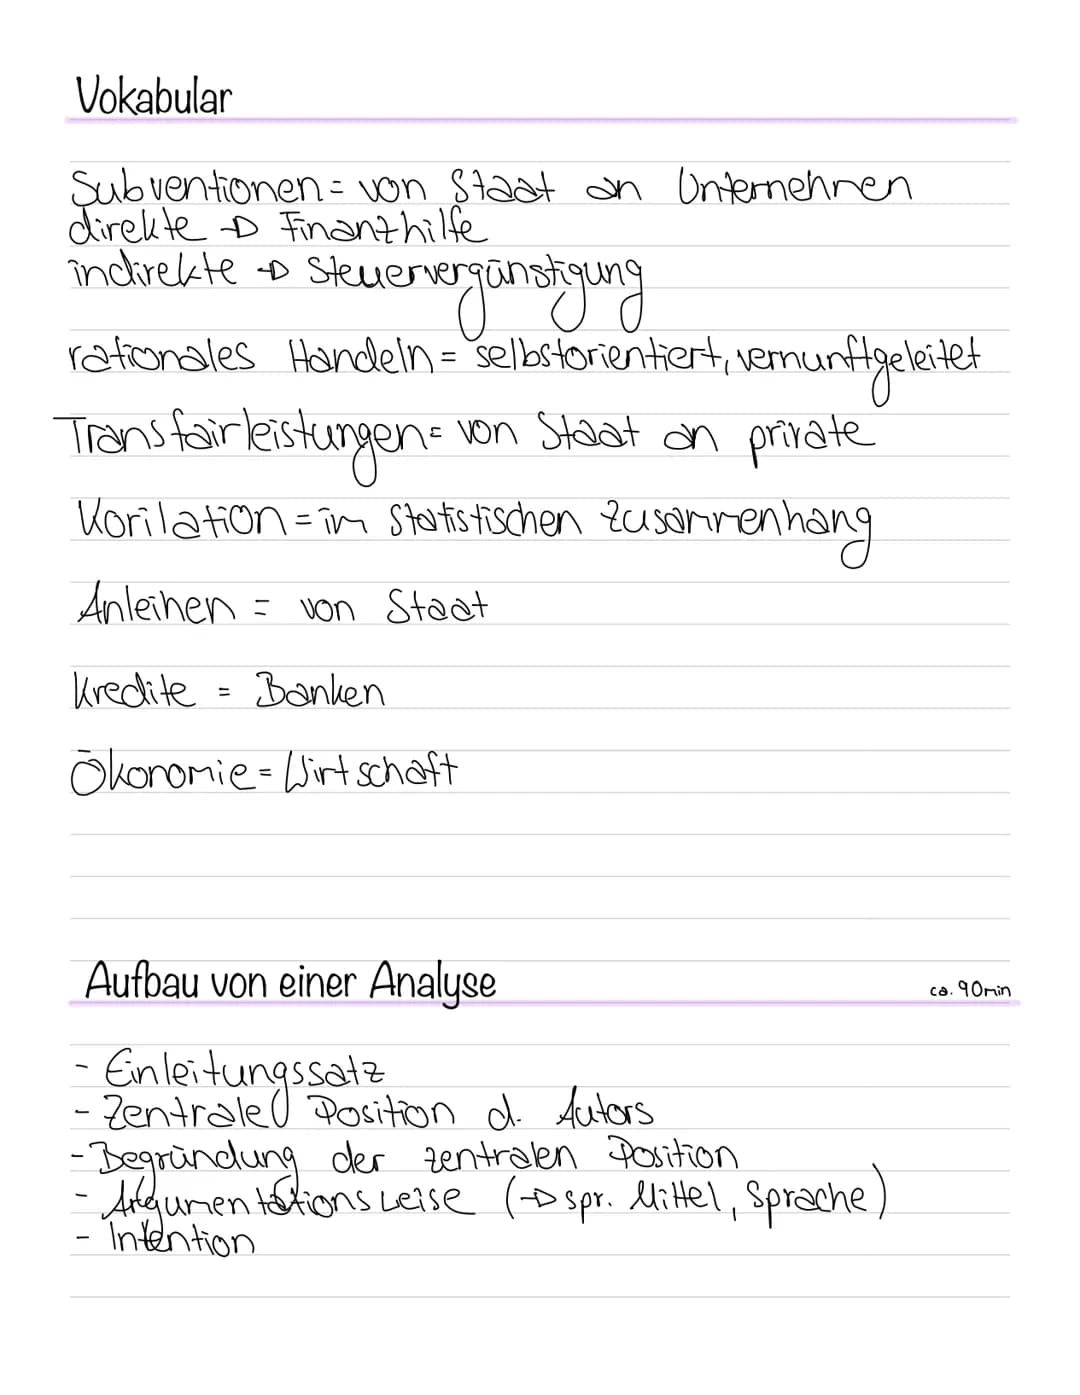 Vokabular
Subventionen = von Staat an Unternehmen
direkte → Finanzhilfe
indirekte → Steuervergünstigung
rationales Handeln = selbstorientiert, vernunftgeleitet
Transfairleistungen = von Staat an private
Korilation = im statistischen Zusammenhang
Anleihen = von Staat
Kredite = Banken
Ökonomie = Wirtschaft
Aufbau von einer Analyse ca. 90min
- Einleitungssatz
- Zentrale Position d. Autors
- Begründung der zentralen Position
- Argumentationsweise (→ spr. Mittel, Sprache)
- Intention